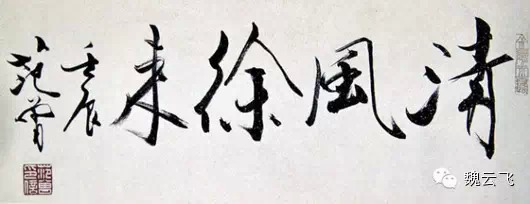 清風徐来
壬辰
范曾
魏云飞